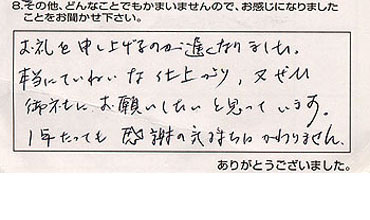 8.その他、どんなことでもかまいませんので、お感じになりました
ことをお聞かせ下さい。
お礼を申し上げるのが遅くなりました。
本当にていねいな仕上がり、又ぜひ
御社にお願いしたいと思っています。
1年たっても感謝の気持ちはかわりません。
ありがとうございました。